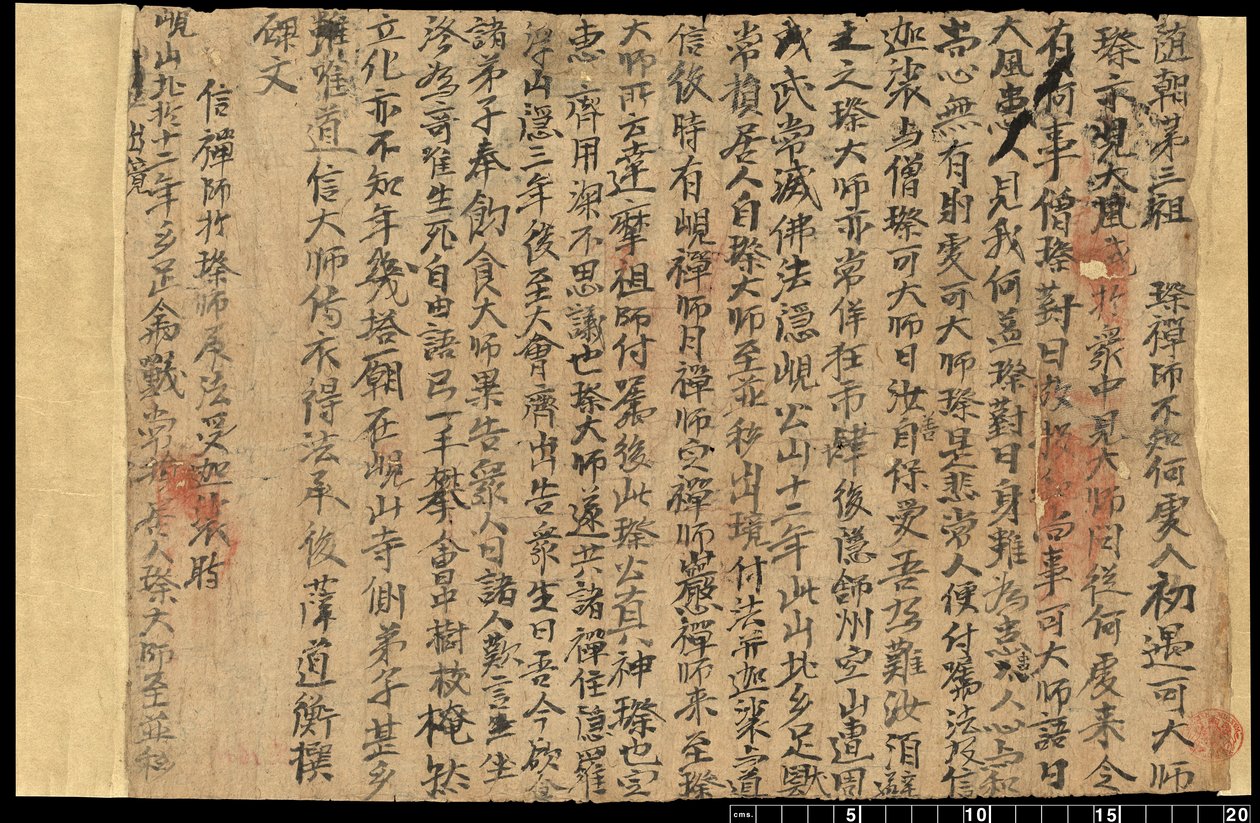 隨朝第三祖 璨禪師不知何處人初遇可大師
璨示見大風於衆中見大師問從何處來今
有何事僧璨對曰故投和尚事可大師語曰
大風患人見我何益璨對曰身雖為患人心与和
尚心無有別處可大師璨是悲常人便付囑法及信
迦裟与僧璨可大師曰汝善自保愛吾有難汝須避
之之璨大師亦常佯狂市肆後隱舒州空山遭周
武武常滅佛法隱峴公山十二年此山北多足獸
常損居人自璨大師至並移出境付法并迦裟与道
信後時有峴禪師月禪師定禪師巖禪師来至璨
大師所云達摩祖師付囑後此璨公真神璨也定
惠齊用深不思議也璨大師遂共諸禪住隱羅
浮山隱三年後至大會齊出告衆生曰吾今欲食
諸弟子奉飲食大師果告衆人曰諸人歎言坐
終為奇唯生死自由語已一手攀會中樹枝掩然
立化亦不知年幾塔廟在峴山寺側弟子甚多
難唯道信大師傳衣得法承後薛道衡撰
碑文
信禪師於璨師處法受迦裟時
峴山北於十二年多足禽獸常損居人璨大師至並移
出境